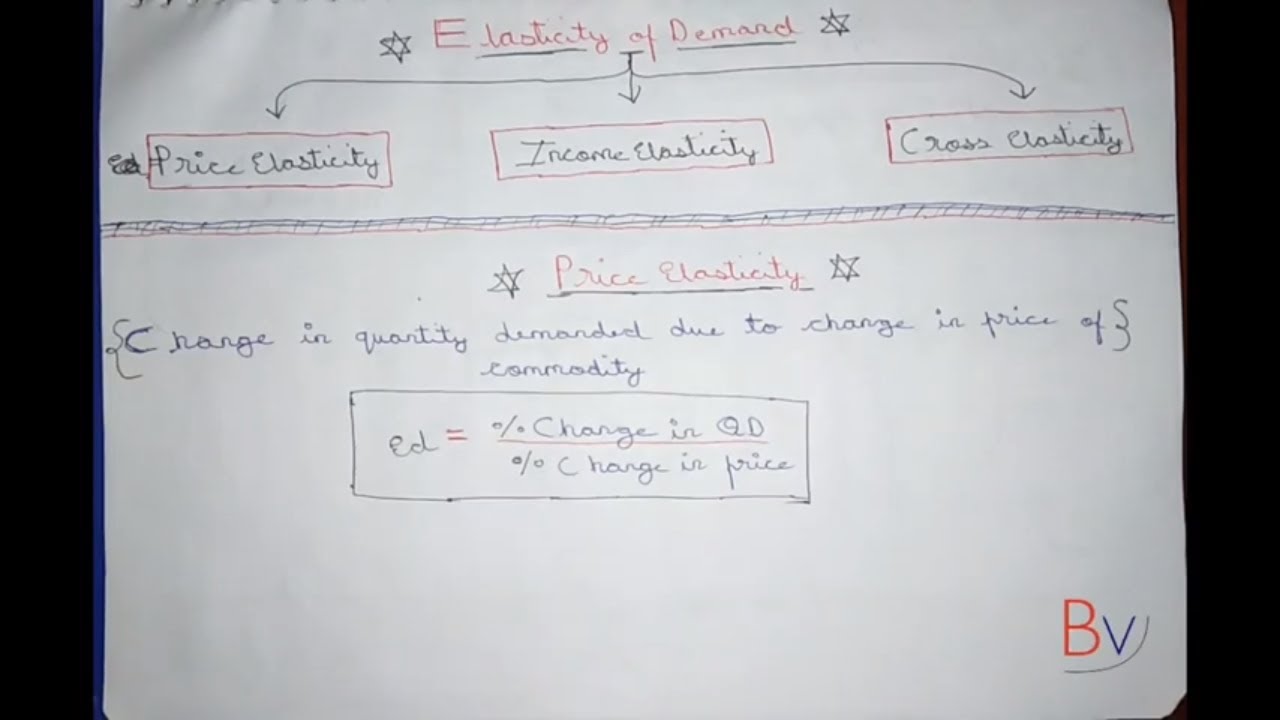 Elasticity of Demand
Price Elasticity
Income Elasticity
Cross Elasticity
Price Elasticity
{Change in quantity demanded due to change in price of}
commodity
Ed = % Change in QD
% Change in price
BV